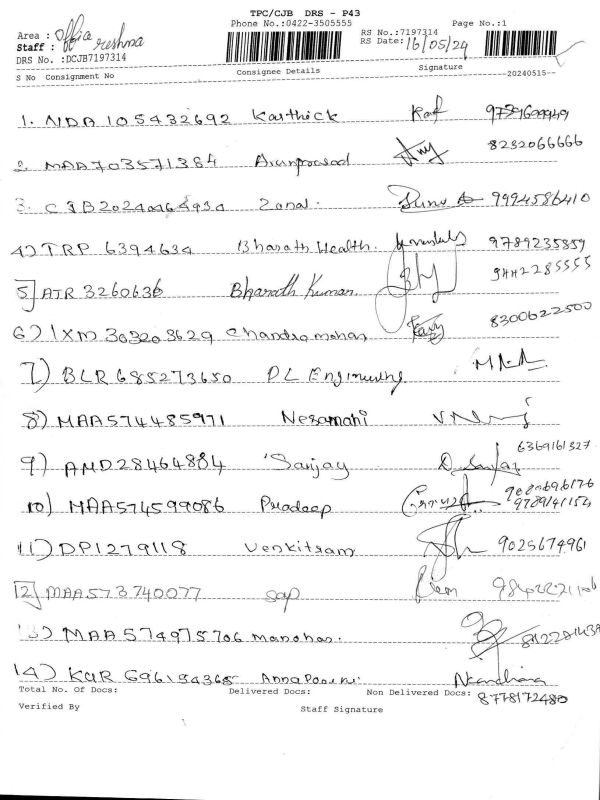 TPC/CJB DRS - P43
Phone No.:0422-3505555 Page No.:1
Area : Office
Staff : reshma
RS No.:7197314
RS Date: 16/05/24
DRS No. :DCJB7197314
S No Consignment No Consignee Details Signature --20240515--
1. NDA 105432692 Karthick
2. MAA703571384 Arunprasad 8232066666
3. CJB20240464934 Zonal. 9994586410
4) TRP 6394634 Bharath Health. 9789235859
5] ATR 3260636 Bharath Kumar 9442285555
6) IXM 303203629 Chandramohan 8300622500
7) BLR 685273650 PL Engineering
8) MAA574485971 Nesamani
9) AMD28464884 Sanjay 6369161327
10) MAA574599086 Pradeep 9789141154
11) DPI279118 Venkitram 9025674961
12] MAA573740077 sap
13) MAA 574975706 Manohar.
14) KUR 696154368 Annapoorni
Total No. Of Docs: Delivered Docs: Non Delivered Docs: 8778172480
Verified By Staff Signature